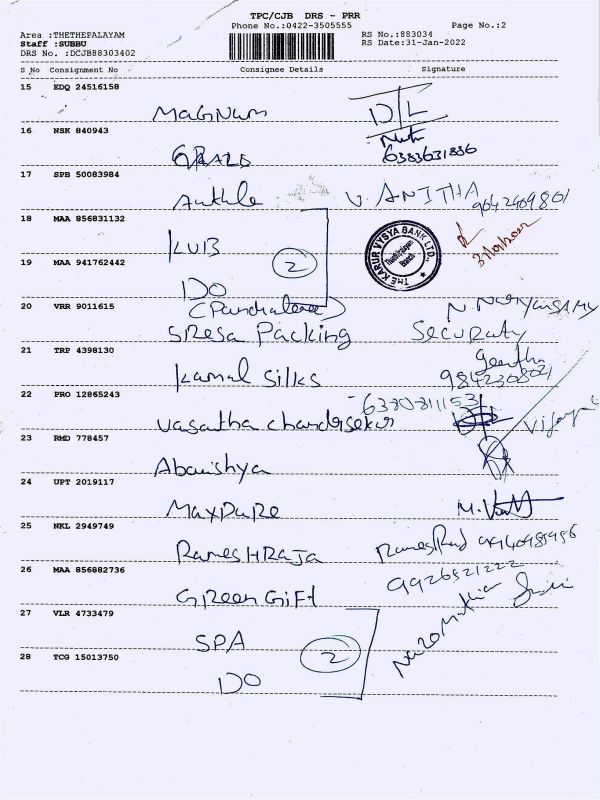 TPC/CJB DRS - PRR
Phone No.:0422-3505555
Page No.:2
Area :THETHEPALAYAM
Staff :SUBBU
DRS No. :DCJB88303402
RS No.:883034
RS Date:31-Jan-2022
S No Consignment No Consignee Details Signature
15 EDQ 24516158
MAGNUM D/L
16 NSK 840943
6383631886
17 SPB 50083984
V. ANITHA 9042409801
18 MAA 856831132
KVB
THE KARUR VYSYA BANK LTD.,
Branch
2
19 MAA 941762442
DO
20 VRR 9011615
SRESA Packing Securaty
21 TRP 4398130
Geetha
Kamal Silks 9842308021
22 PRO 12865243
6380811153
Vasantha chandrsekar
23 RMD 778457
24 UPT 2019117
MAXPURE
25 NKL 2949749
RAMESHRAJA
26 MAA 856882736
9926521222
GREEN GIFT
27 VLR 4733479
SPA
2
28 TCG 15013750
DO